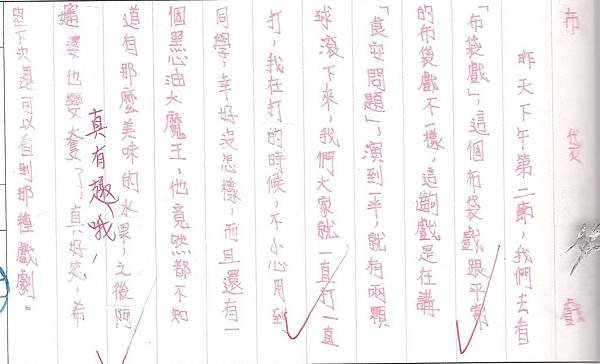 布袋戲
昨天下午第二節,我們去看
「布袋戲」,這個布袋戲跟平常
的布袋戲不一樣,這齣戲是在講
「食安問題」,演到一半,就有兩顆
球滾下來,我們大家就一直打一直
打,我在打的時候,不小心用到
同學,幸好沒怎樣,而且還有一
個黑心油大魔王,他竟然都不知
道有那麼美味的水果,之後阿
真有趣哦!
婆也變了,真好笑,希
望下次還可以看到那種戲劇。